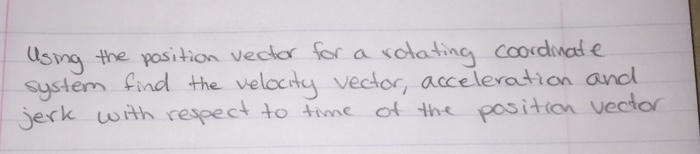 Using the position vector for a rotating coordinate
system find the velocity vector, acceleration and
jerk with respect to time of the position vector